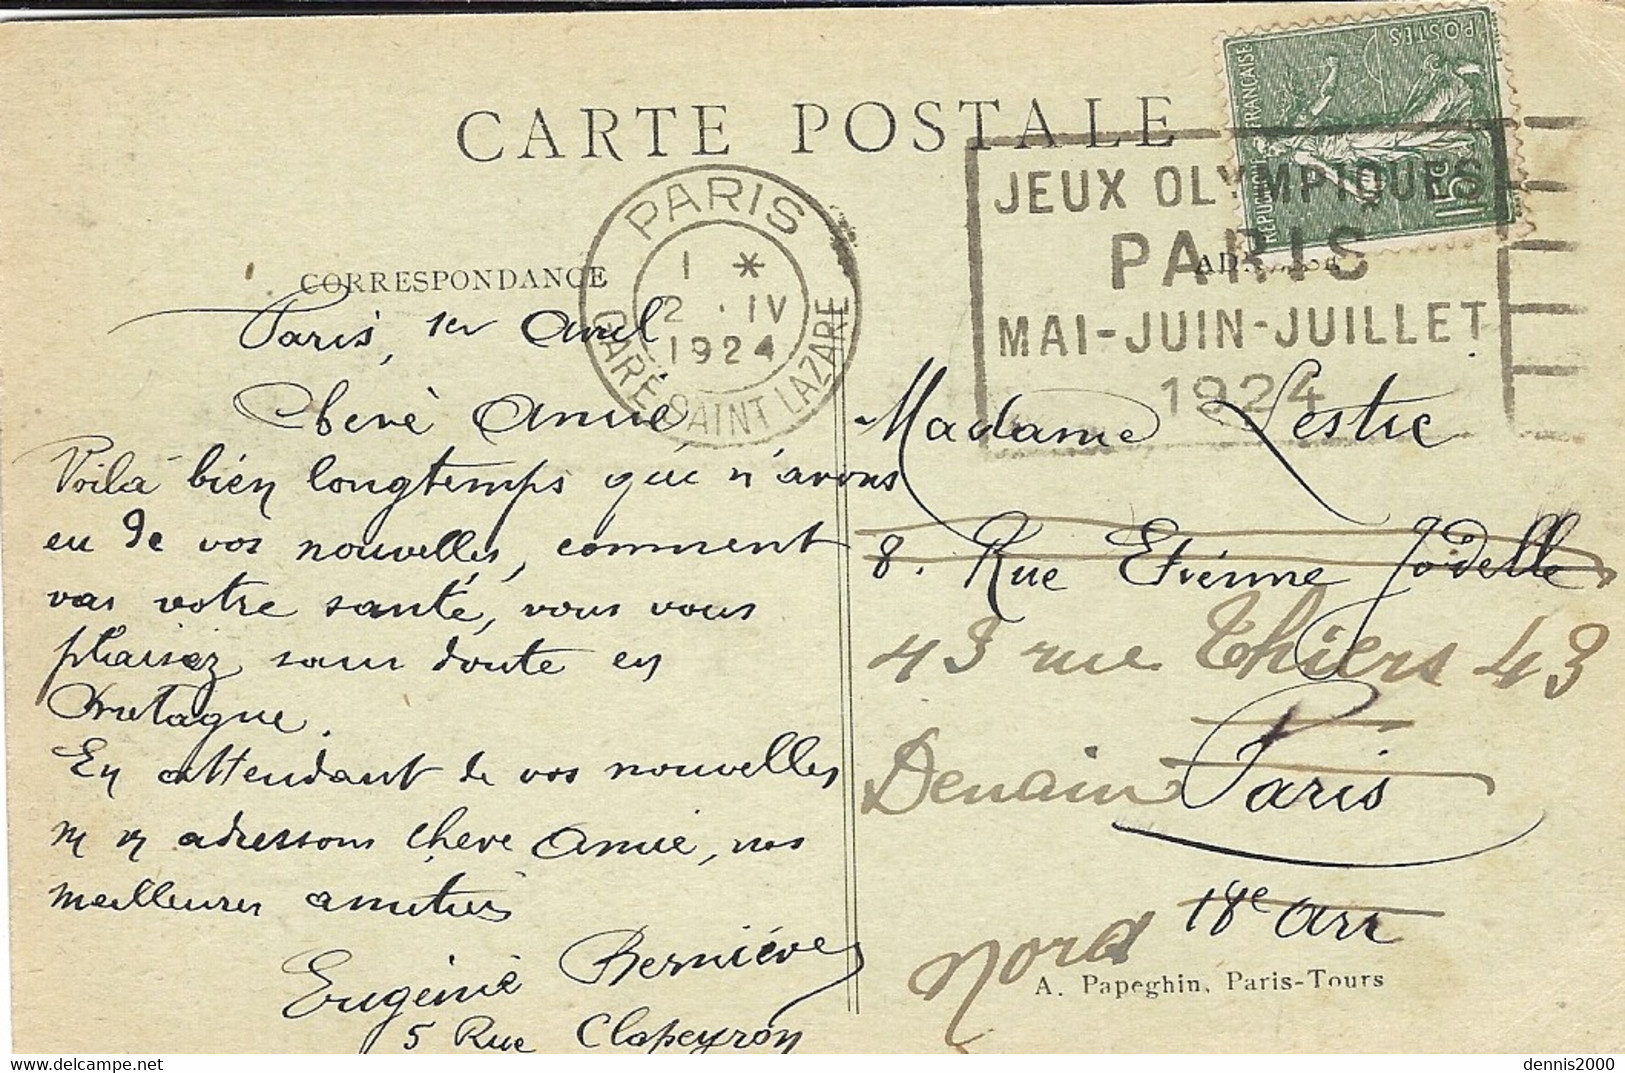 CARTE POSTALE
RÉPUBLIQUE FRANÇAISE
POSTES
15c
JEUX OLYMPIQUES
PARIS
MAI-JUIN-JUILLET
1924
PARIS
1 *
2 . IV
1924
GARE SAINT LAZARE
CORRESPONDANCE
Paris, 1er Avril
Chère Amie
Voilà bien longtemps que n'avons
eu de vos nouvelles, comment
vas votre santé, vous vous
plaisez sans doute en
Bretagne.
En attendant de vos nouvelles
adressons chère Amie, nos
meilleures amitiés
Eugénie
5 Rue Clapeyron
Madame Lestic
8. Rue Etienne Jodelle
43 rue Thiers 43
Denain Paris
18e arr
Nord
A. Papeghin, Paris-Tours
dennis2000